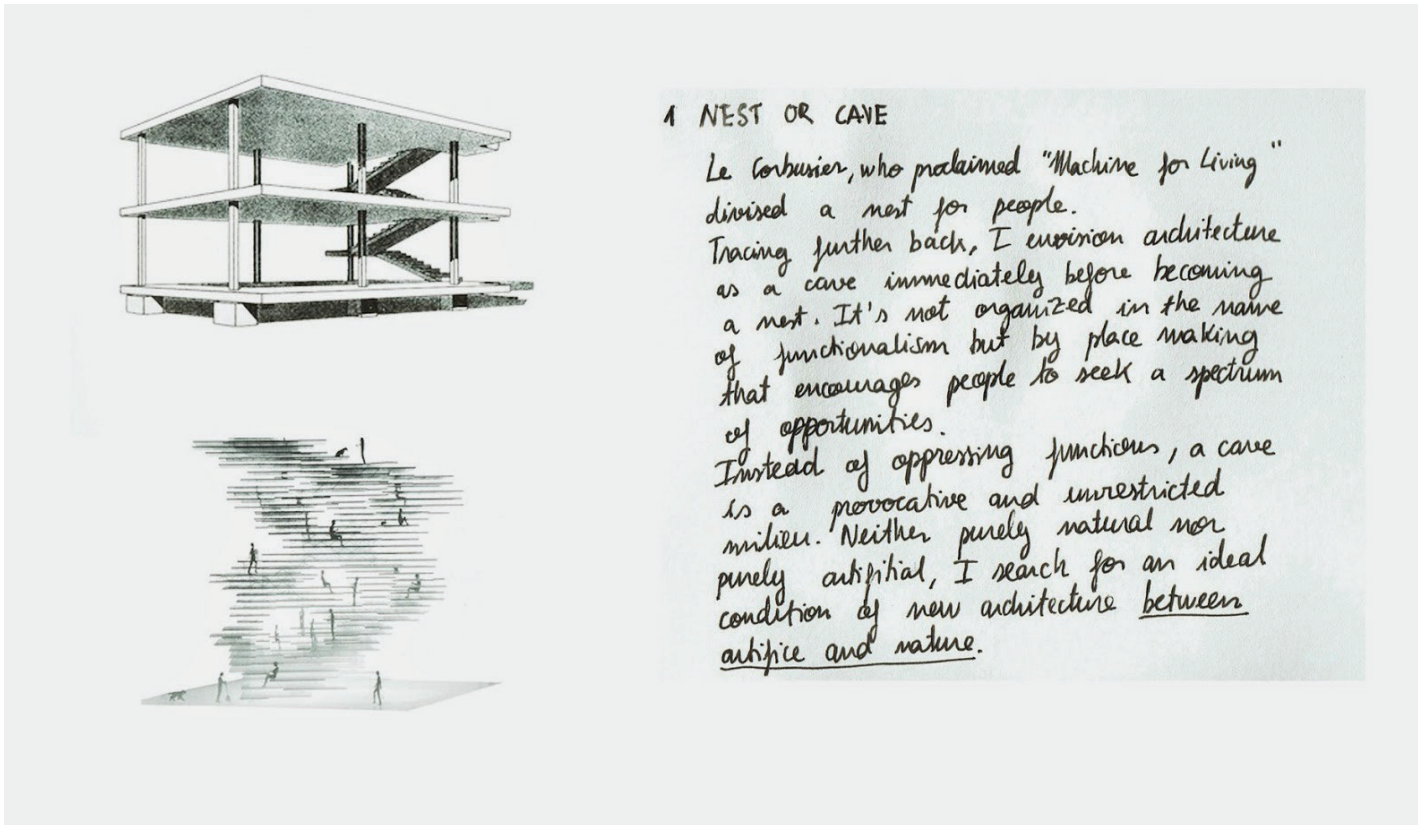 1 NEST OR CAVE
Le Corbusier, who proclaimed "Machine for Living"
divised a nest for people.
Tracing further back, I envision architecture
as a cave immediately before becoming
a nest. It's not organized in the name
of functionalism but by place making
that encourages people to seek a spectrum
of opportunities.
Instead of oppressing functions, a cave
is a provocative and unrestricted
milieu. Neither purely natural nor
purely artifitial, I search for an ideal
condition of new architecture between
artifice and nature.